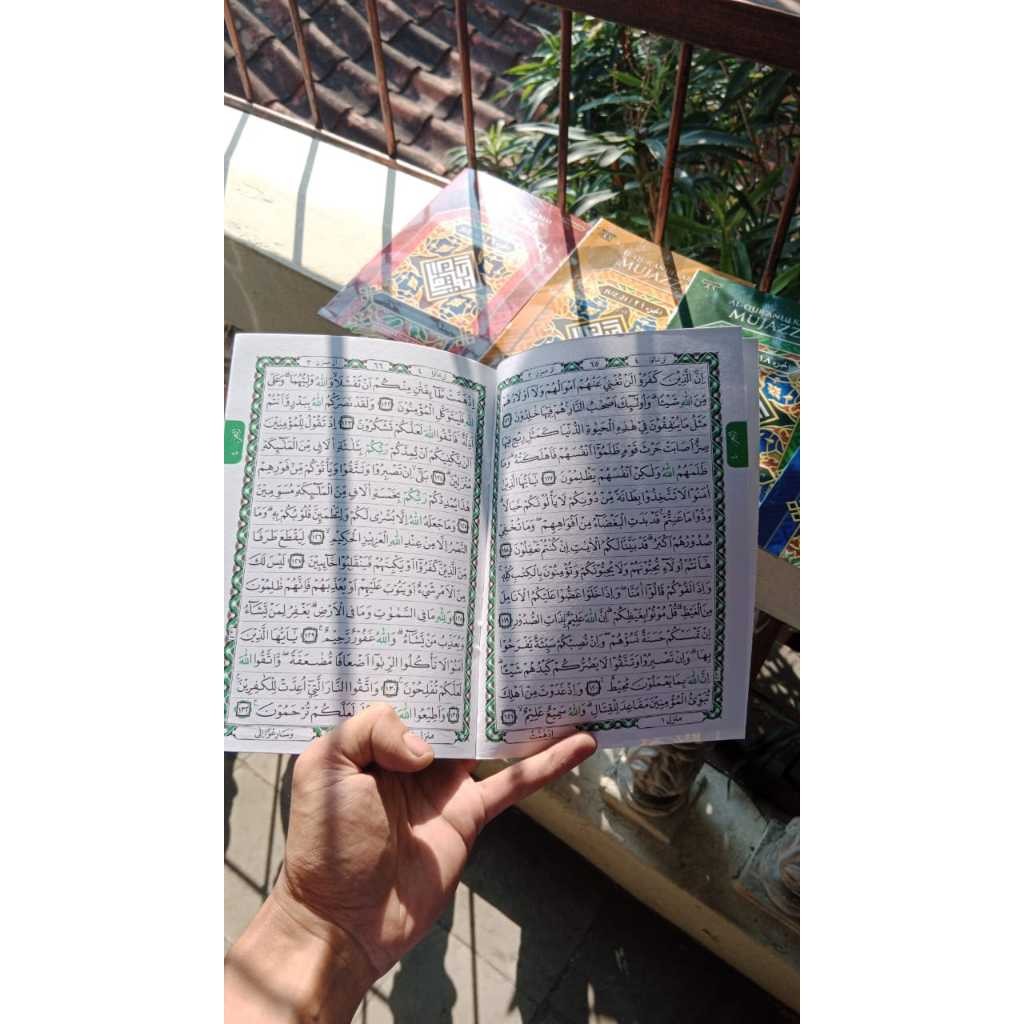 لن تنالوا ٤
٦٥
اٰل عمرٰن ٣
اِنَّ الَّذِيْنَ كَفَرُوْا لَنْ تُغْنِيَ عَنْهُمْ اَمْوَالُهُمْ وَلَآ اَوْلَادُهُمْ
مِّنَ اللّٰهِ شَيْـًٔا ۗ وَاُولٰۤىِٕكَ اَصْحٰبُ النَّارِ ۚ هُمْ فِيْهَا خٰلِدُوْنَ ١١٦
مَثَلُ مَا يُنْفِقُوْنَ فِيْ هٰذِهِ الْحَيٰوةِ الدُّنْيَا كَمَثَلِ رِيْحٍ فِيْهَا
صِرٌّ اَصَابَتْ حَرْثَ قَوْمٍ ظَلَمُوْٓا اَنْفُسَهُمْ فَاَهْلَكَتْهُ ۗ وَمَا
ظَلَمَهُمُ اللّٰهُ وَلٰكِنْ اَنْفُسَهُمْ يَظْلِمُوْنَ ١١٧ يٰٓاَيُّهَا الَّذِيْنَ
اٰمَنُوْا لَا تَتَّخِذُوْا بِطَانَةً مِّنْ دُوْنِكُمْ لَا يَأْلُوْنَكُمْ خَبَالًا ۗ
وَدُّوْا مَا عَنِتُّمْ ۚ قَدْ بَدَتِ الْبَغْضَاۤءُ مِنْ اَفْوَاهِهِمْ ۖ وَمَا تُخْفِيْ
صُدُوْرُهُمْ اَكْبَرُ ۗ قَدْ بَيَّنَّا لَكُمُ الْاٰيٰتِ اِنْ كُنْتُمْ تَعْقِلُوْنَ ١١٨
هٰٓاَنْتُمْ اُولَاۤءِ تُحِبُّوْنَهُمْ وَلَا يُحِبُّوْنَكُمْ وَتُؤْمِنُوْنَ بِالْكِتٰبِ كُلِّهٖ ۚ
وَاِذَا لَقُوْكُمْ قَالُوْٓا اٰمَنَّا ۖ وَاِذَا خَلَوْا عَضُّوْا عَلَيْكُمُ الْاَنَامِلَ
مِنَ الْغَيْظِ ۗ قُلْ مُوْتُوْا بِغَيْظِكُمْ ۗ اِنَّ اللّٰهَ عَلِيْمٌ ۢ بِذَاتِ الصُّدُوْرِ ١١٩
اِنْ تَمْسَسْكُمْ حَسَنَةٌ تَسُؤْهُمْ ۖ وَاِنْ تُصِبْكُمْ سَيِّئَةٌ يَّفْرَحُوْا
بِهَا ۗ وَاِنْ تَصْبِرُوْا وَتَتَّقُوْا لَا يَضُرُّكُمْ كَيْدُهُمْ شَيْـًٔا ۗ
اِنَّ اللّٰهَ بِمَا يَعْمَلُوْنَ مُحِيْطٌ ١٢٠ وَاِذْ غَدَوْتَ مِنْ اَهْلِكَ
تُبَوِّئُ الْمُؤْمِنِيْنَ مَقَاعِدَ لِلْقِتَالِ ۗ وَاللّٰهُ سَمِيْعٌ عَلِيْمٌ ۙ ١٢١
منزل ١
اِذْ هَمَّتْ
لن تنالوا ٤
٦٦
اٰل عمرٰن ٣
اِذْ هَمَّتْ طَّاۤىِٕفَتٰنِ مِنْكُمْ اَنْ تَفْشَلَا ۙ وَاللّٰهُ وَلِيُّهُمَا ۗ وَعَلَى
اللّٰهِ فَلْيَتَوَكَّلِ الْمُؤْمِنُوْنَ ١٢٢ وَلَقَدْ نَصَرَكُمُ اللّٰهُ بِبَدْرٍ وَّاَنْتُمْ
اَذِلَّةٌ ۚ فَاتَّقُوا اللّٰهَ لَعَلَّكُمْ تَشْكُرُوْنَ ١٢٣ اِذْ تَقُوْلُ لِلْمُؤْمِنِيْنَ
اَلَنْ يَّكْفِيَكُمْ اَنْ يُّمِدَّكُمْ رَبُّكُمْ بِثَلٰثَةِ اٰلَافٍ مِّنَ الْمَلٰۤىِٕكَةِ
مُنْزَلِيْنَ ۗ ١٢٤ بَلٰٓى ۙ اِنْ تَصْبِرُوْا وَتَتَّقُوْا وَيَأْتُوْكُمْ مِّنْ فَوْرِهِمْ
هٰذَا يُمْدِدْكُمْ رَبُّكُمْ بِخَمْسَةِ اٰلَافٍ مِّنَ الْمَلٰۤىِٕكَةِ مُسَوِّمِيْنَ
١٢٥ وَمَا جَعَلَهُ اللّٰهُ اِلَّا بُشْرٰى لَكُمْ وَلِتَطْمَىِٕنَّ قُلُوْبُكُمْ بِهٖ ۗ وَمَا
النَّصْرُ اِلَّا مِنْ عِنْدِ اللّٰهِ الْعَزِيْزِ الْحَكِيْمِ ۙ ١٢٦ لِيَقْطَعَ طَرَفًا
مِّنَ الَّذِيْنَ كَفَرُوْٓا اَوْ يَكْبِتَهُمْ فَيَنْقَلِبُوْا خَاۤىِٕبِيْنَ ١٢٧ لَيْسَ لَكَ
مِنَ الْاَمْرِ شَيْءٌ اَوْ يَتُوْبَ عَلَيْهِمْ اَوْ يُعَذِّبَهُمْ فَاِنَّهُمْ ظٰلِمُوْنَ
١٢٨ وَلِلّٰهِ مَا فِى السَّمٰوٰتِ وَمَا فِى الْاَرْضِ ۗ يَغْفِرُ لِمَنْ يَّشَاۤءُ
وَيُعَذِّبُ مَنْ يَّشَاۤءُ ۗ وَاللّٰهُ غَفُوْرٌ رَّحِيْمٌ ١٢٩ يٰٓاَيُّهَا الَّذِيْنَ
اٰمَنُوْا لَا تَأْكُلُوا الرِّبٰوٓا اَضْعَافًا مُّضٰعَفَةً ۖ وَّاتَّقُوا اللّٰهَ
لَعَلَّكُمْ تُفْلِحُوْنَ ۚ ١٣٠ وَاتَّقُوا النَّارَ الَّتِيْٓ اُعِدَّتْ لِلْكٰفِرِيْنَ ۚ
١٣١ وَاَطِيْعُوا اللّٰهَ لَعَلَّكُمْ تُرْحَمُوْنَ ۚ ١٣٢
وَسَارِعُوْٓا اِلٰى
MUJAZ
JUZ
AL-QUR'ANUL K
MUJAZZ